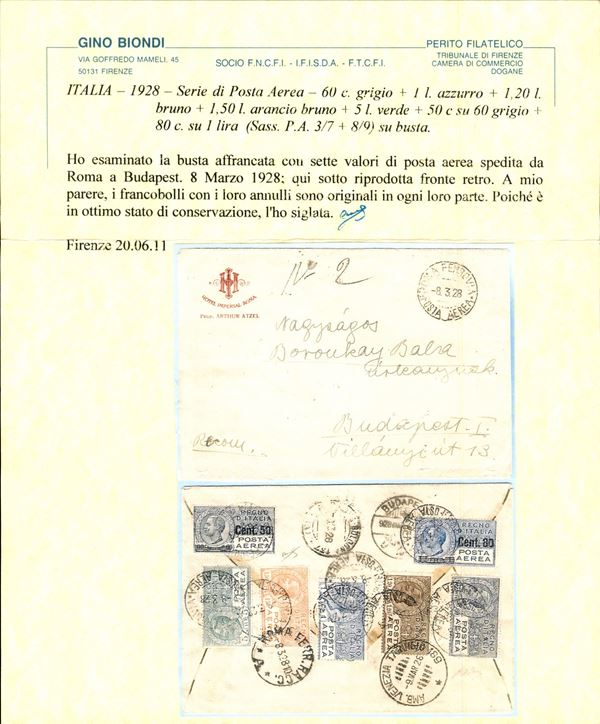 GINO BIONDI
VIA GOFFREDO MAMELI. 45
50131 FIRENZE
SOCIO F.N.C.F.I. - I.F.I.S.D.A. - F.T.C.F.I.
PERITO FILATELICO
TRIBUNALE DI FIRENZE
CAMERA DI COMMERCIO
DOGANE
ITALIA – 1928 – Serie di Posta Aerea – 60 c. grigio + 1 l. azzurro + 1,20 l.
bruno + 1,50 l. arancio bruno + 5 l. verde + 50 c su 60 grigio +
80 c. su 1 lira (Sass. P.A. 3/7 + 8/9) su busta.
Ho esaminato la busta affrancata con sette valori di posta aerea spedita da
Roma a Budapest. 8 Marzo 1928; qui sotto riprodotta fronte retro. A mio
parere, i francobolli con i loro annulli sono originali in ogni loro parte. Poiché è
in ottimo stato di conservazione, l'ho siglata.
Firenze 20.06.11
HOTEL IMPERIAL ROMA
PROP. ARTHUR ATZEL
No 2
ROMA FERROVIA
-8.3.28
POSTA AEREA
Nagyságos
Boroukay Balra
Budapest-I.
Villányi út 13.
Recom.
REGNO
D'ITALIA
Cent. 50
POSTA
AEREA
BUDAPEST
REGNO
D'ITALIA
Cent. 80
POSTA
AEREA
POSTA
AEREA
POSTA
AEREA
POSTA
AEREA
ROMA FERR. RACC.
8.3.28
AMB. VENEZIA
-9.MAR.28